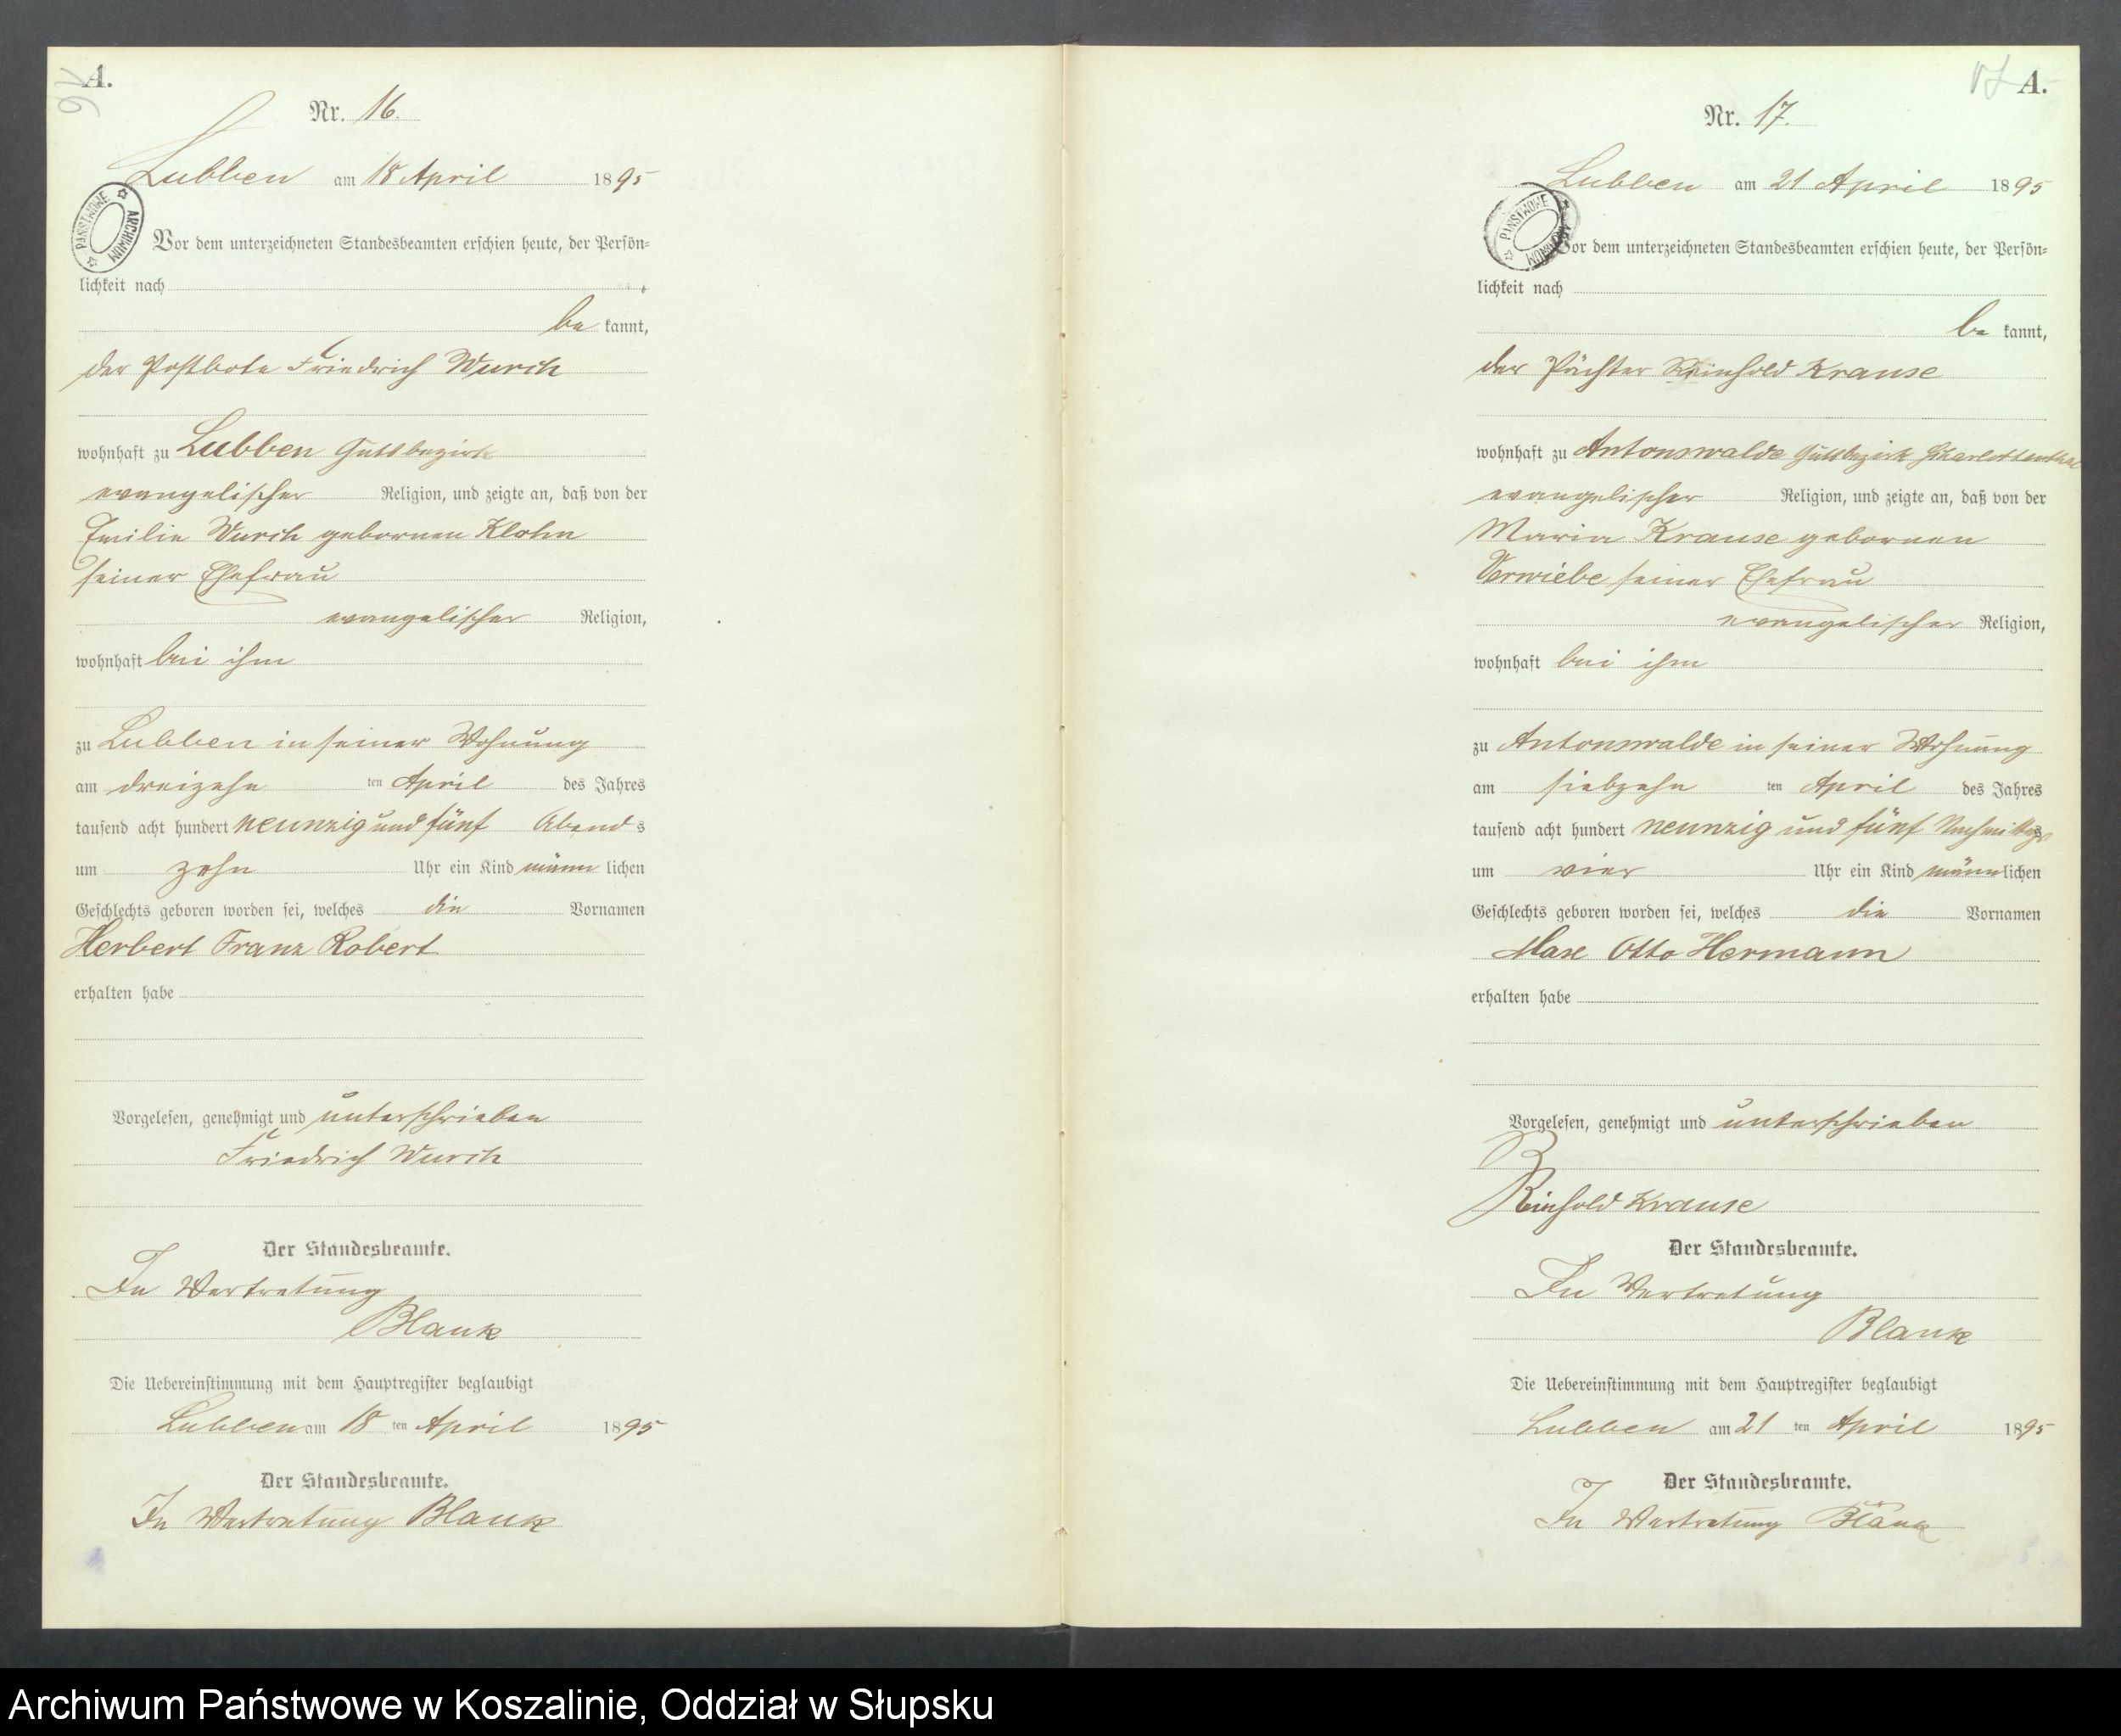 A.
Nr. 16.
Lubben am 18 April 1895
PAŃSTWOWE ARCHIWUM
Vor dem unterzeichneten Standesbeamten erschien heute, der Persön=
lichkeit nach
be kannt,
der Postbote Friedrich Wurch
wohnhaft zu Lubben Gutsbezirk
evangelischer Religion, und zeigte an, daß von der
Emilie Wurch gebornen Klohn
seiner Ehefrau
evangelischer Religion,
wohnhaft bei ihm
zu Lubben in seiner Wohnung
am dreizehn ten April des Jahres
tausend acht hundert neunzig und fünf Abends
um zehn Uhr ein Kind männlichen
Geschlechts geboren worden sei, welches die Vornamen
Herbert Franz Robert
erhalten habe
Vorgelesen, genehmigt und unterschrieben
Friedrich Wurch
Der Standesbeamte.
In Vertretung
Blank
Die Uebereinstimmung mit dem Hauptregister beglaubigt
Lubben am 18 ten April 1895
Der Standesbeamte.
In Vertretung Blank
A.
Nr. 17.
Lubben am 21 April 1895
PAŃSTWOWE ARCHIWUM
Vor dem unterzeichneten Standesbeamten erschien heute, der Persön=
lichkeit nach
be kannt,
der Pächter Reinhold Krause
wohnhaft zu Antonswalde Gutsbezirk Charlottenthal
evangelischer Religion, und zeigte an, daß von der
Maria Krause gebornen
Verwiebe seiner Ehefrau
evangelischer Religion,
wohnhaft bei ihm
zu Antonswalde in seiner Wohnung
am siebzehn ten April des Jahres
tausend acht hundert neunzig und fünf Nachmittags
um vier Uhr ein Kind männlichen
Geschlechts geboren worden sei, welches die Vornamen
Max Otto Hermann
erhalten habe
Vorgelesen, genehmigt und unterschrieben
Reinhold Krause
Der Standesbeamte.
In Vertretung
Blank
Die Uebereinstimmung mit dem Hauptregister beglaubigt
Lubben am 21 ten April 1895
Der Standesbeamte.
In Vertretung Blank
Archiwum Państwowe w Koszalinie, Oddział w Słupsku